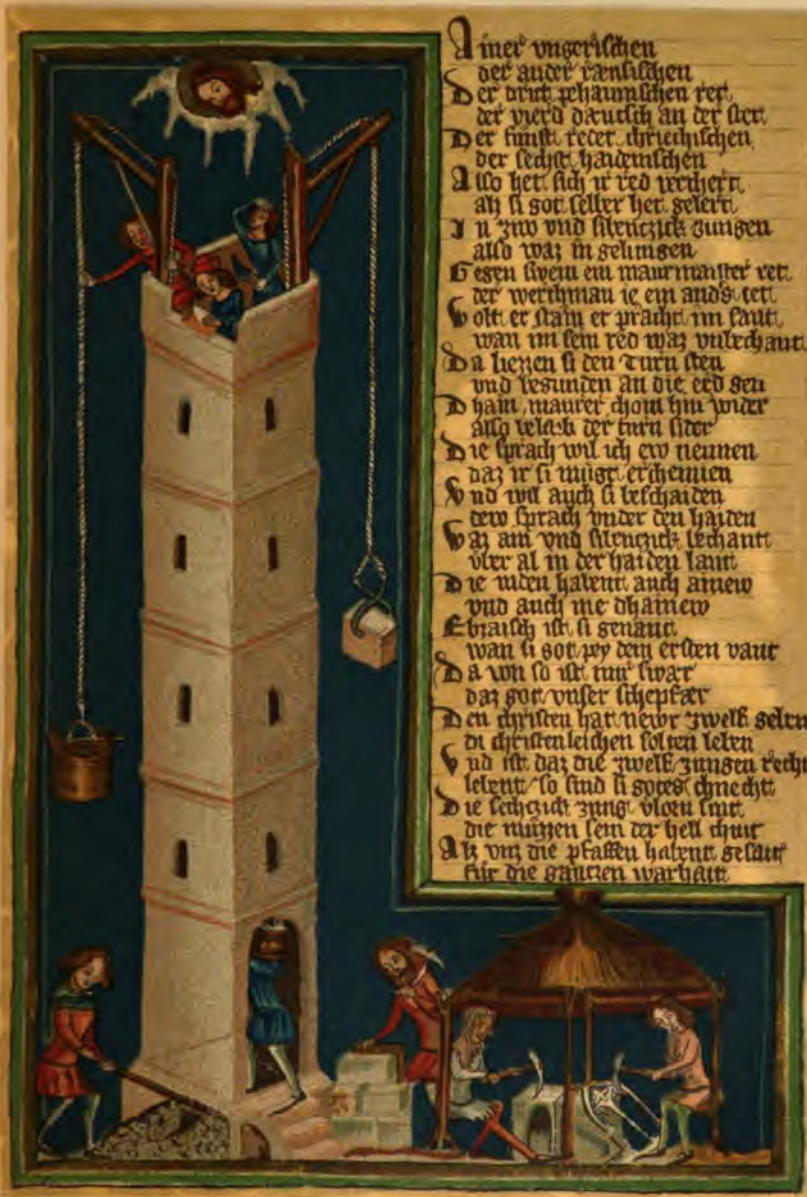 Ainer vngerischen
der ander rænsischen
Der drit pehaimischen ret
der vierd dæutsch an der stet
Der fumft redet chriechischen
der sechst haidenischen
Also het sich ir red verchert
als si got selber het gelert
In zwo und sibenczick zungen
also waz in gelungen
Gegen swem ein maurmaister ret
der werchman ie ein anders tett
Wolt er stain er pracht im sant
wan im sein red waz vnbechant
Da liezzen si den turn sten
vnd begunden an die erd gen
Dhain maurer chom hin wider
also belaib der turn sider
Die sprach wil ich ew nennen
daz ir si mügt erchennen
Vnd wil auch si beschaiden
dew sprach vnder den haiden
Waz ain vnd sibenczick bechant
vber al in der haiden lant
Die iuden habent auch ainew
vnd auch nie dhainew
Ebraisch ist si genant
wan si got pey dem ersten vant
Da von so ist mir swar
daz got vnser schepfær
Den christen hat newr zwelf geben
di christenleichen solten leben
Vnd ist daz die zwelf zungen recht
lebent so sind si gotes chnecht
Die sechczick zung vlorn sint
die müzzen sein der hell chint
Alz vnz die pfaffen habent gesait
für die ganczen warhait